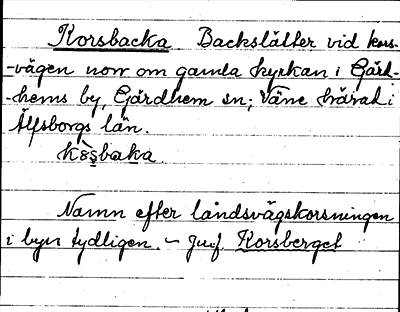 Korsbacka Backslätter vid kors-
-vägen norr om gamla kyrkan i Gärd-
-hems by, Gärdhem sn; Väne härad i
Älfsborgs län.
Namn efter landsvägskorsningen
i byn tydligen. - Jmf. Korsberget